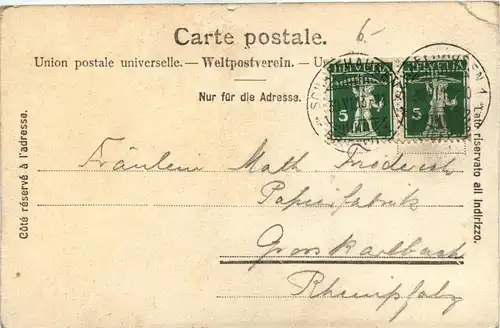 6.-
Carte postale.
Union postale universelle. — Weltpostverein. — Un
Nur für die Adresse.
HELVETIA HELVETIA
5 5
SCHAFFHAUSEN 1
Côté réservé à l'adresse.
Lato riservato all indirizzo.
Fräulein Math Friderich
Papierfabrik
Grosskarlbach
Rheinpfalz